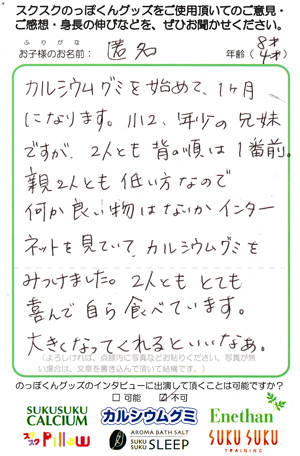 スクスクのっぽくんグッズをご使用頂いてのご意見・
ご感想・身長の伸びなどを、ぜひお聞かせください。
ふりがな
お子様のお名前： 匿名 年齢（8才 4才）
カルシウムグミを始めて、1ヶ月
になります。小2、年少の兄妹
ですが、2人とも背の順は1番前。
親2人とも低い方なので
何か良い物はないかインター
ネットを見ていて、カルシウムグミを
みつけました。2人ともとても
喜んで自ら食べています。
大きくなってくれるといいなぁ。
（よろしければ、点線内に写真などお貼りください。写真が無い
場合は、文章を書き込んで頂いて結構です。）
のっぽくんグッズのインタビューに出演して頂くことは可能ですか？
□可能 ☑不可
SUKUSUKU
CALCIUM
カルシウムグミ
Enethan
スクスク Pillow
AROMA BATH SALT
SUKU SUKU SLEEP
SUKU SUKU
TRAINING